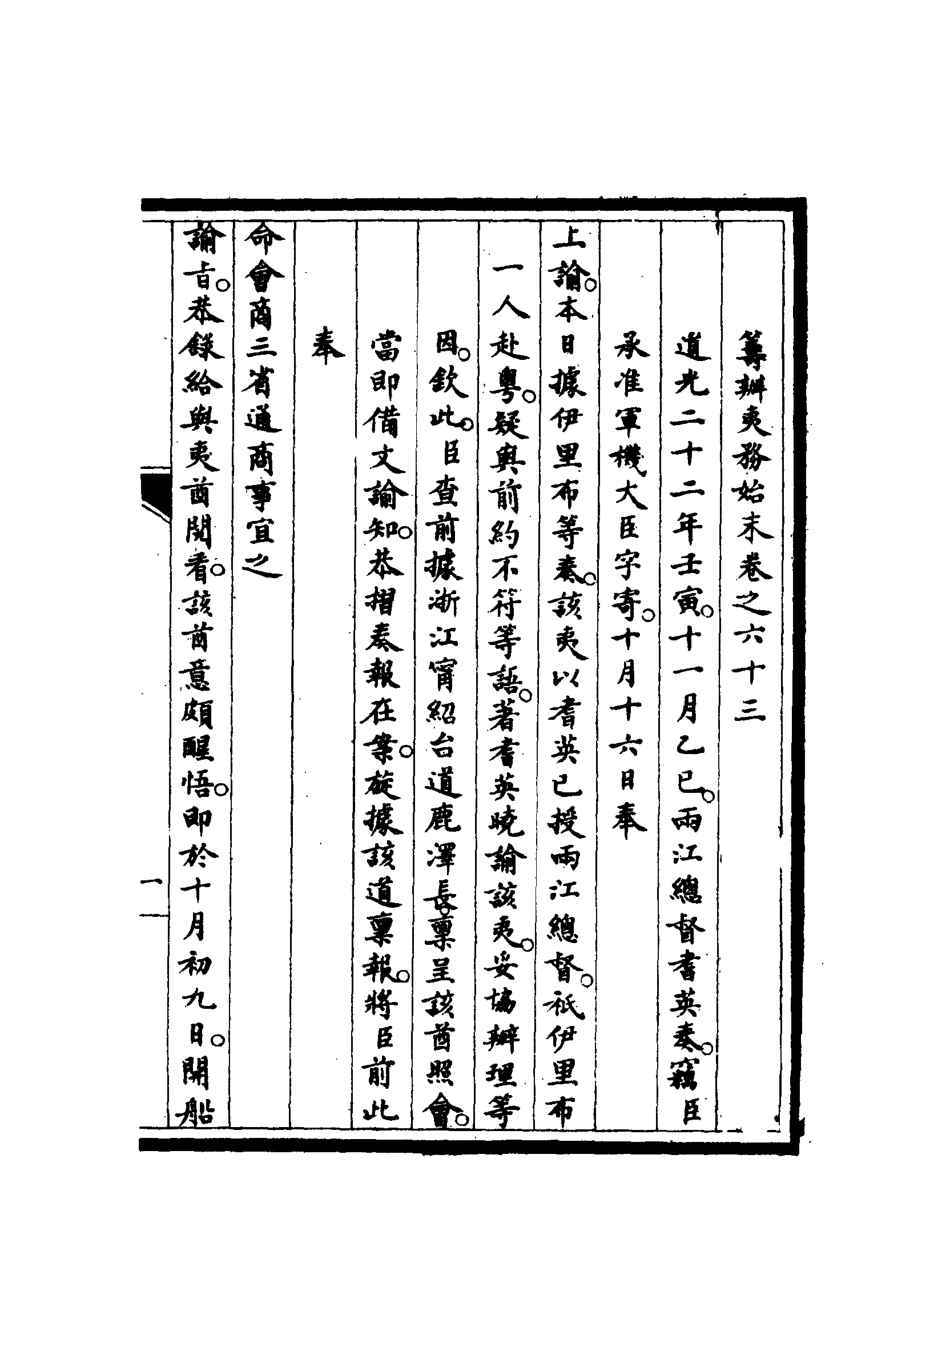 籌辦夷務始末卷之六十三
道光二十二年壬寅。十一月乙巳。兩江總督耆英奏。竊臣
承准軍機大臣字寄。十月十六日奉
上諭。本日據伊里布等奏。該夷以耆英已授兩江總督。祇伊里布
一人赴粵。疑與前約不符等語。著耆英曉諭該夷。妥協辦理等
因。欽此。臣查前據浙江甯紹台道鹿澤長。稟呈該酋照會。
當即備文諭知。恭摺奏報在案。旋據該道稟報。將臣前此
奉
命會商三省通商事宜之
諭旨。恭錄給與夷酋閱看。該酋意頗醒悟。即於十月初九日。開船
一